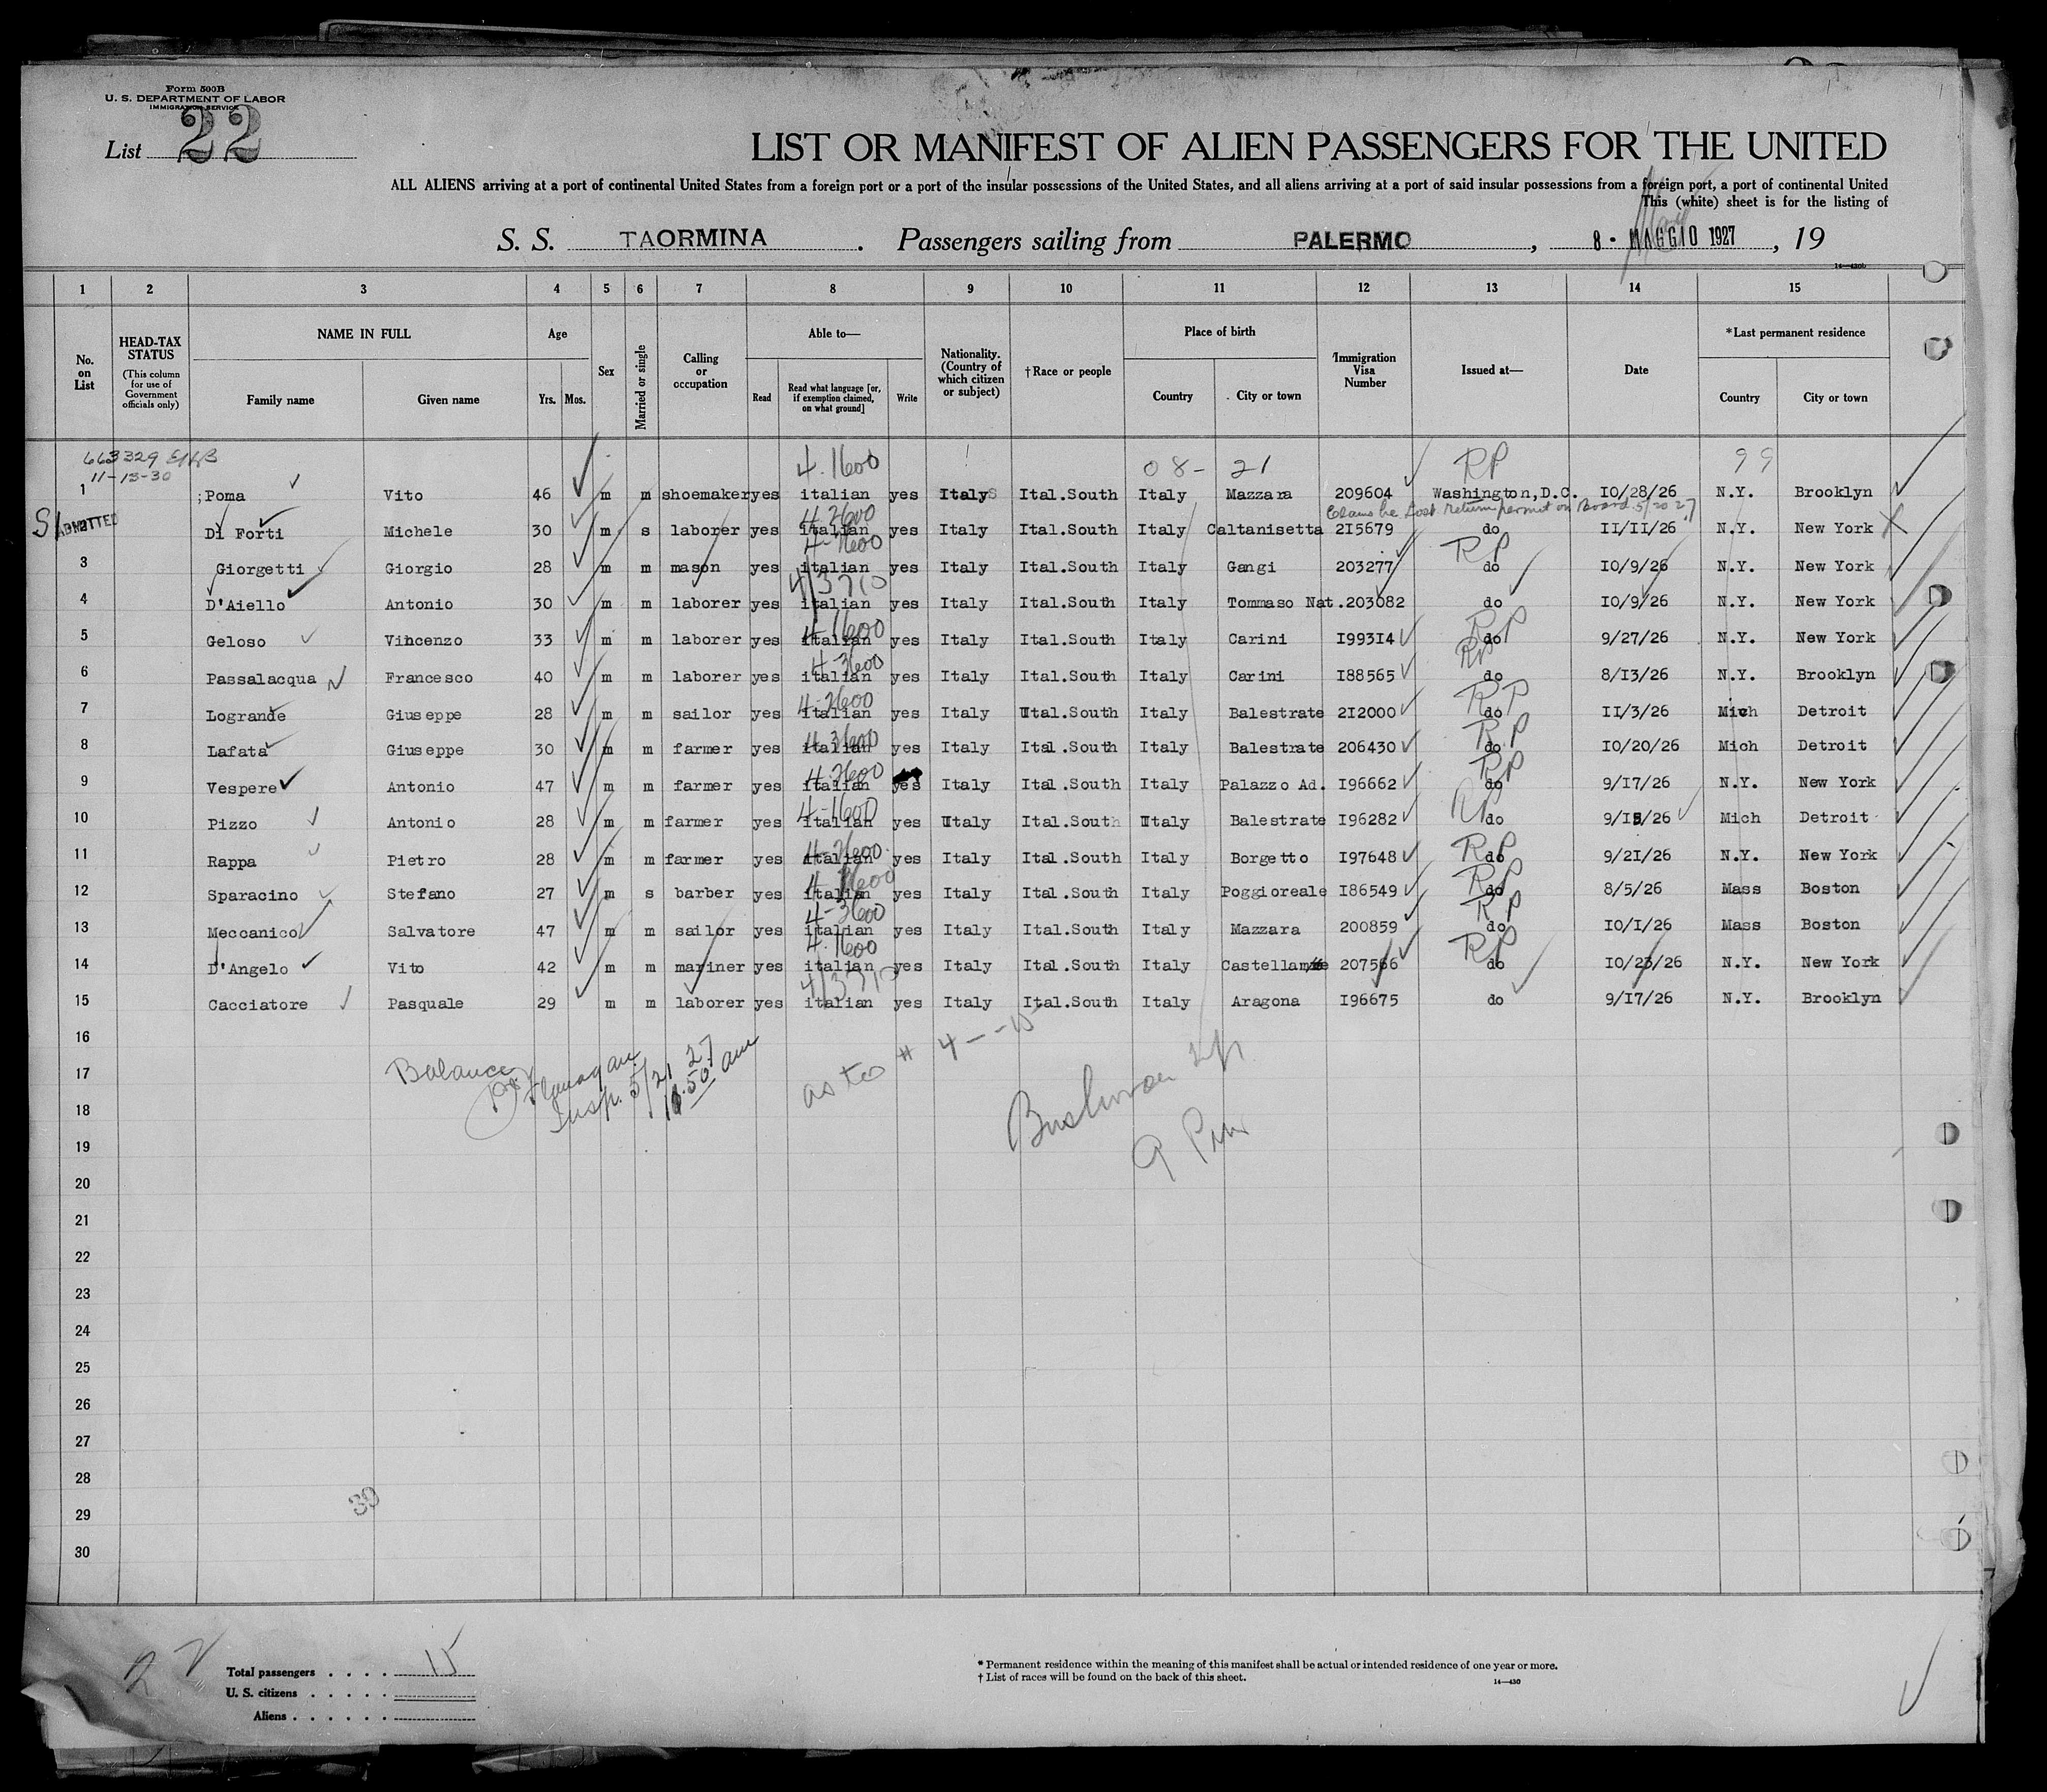 Form 500B
U. S. DEPARTMENT OF LABOR
IMMIGRATION SERVICE
List 22
LIST OR MANIFEST OF ALIEN PASSENGERS FOR THE UNITED
ALL ALIENS arriving at a port of continental United States from a foreign port or a port of the insular possessions of the United States, and all aliens arriving at a port of said insular possessions from a foreign port, a port of continental United
This (white) sheet is for the listing of
May
S. S. TAORMINA. Passengers sailing from PALERMO, 8 - MAGGIO 1927, 19
14—430b
1 2 3 4 5 6 7 8 9 10 11 12 13 14 15
No. on List
HEAD-TAX STATUS (This column for use of Government officials only)
NAME IN FULL Family name Given name
Age Yrs. Mos.
Sex
Married or single
Calling or occupation
Able to— Read Read what language [or, if exemption claimed, on what ground] Write
Nationality. (Country of which citizen or subject)
†Race or people
Place of birth Country City or town
Immigration Visa Number
Issued at—
Date
*Last permanent residence Country City or town
663329
11-13-30
4-1600 08- 21 RP 99
1 Poma Vito 46 m m shoemaker yes italian yes Italy Ital.South Italy Mazzara 209604 Washington,D.C. I0/28/26 N.Y. Brooklyn
Claims he lost return permit on board 5/20 27
ADMITTED 4-2600
2 Di Forti Michele 30 m s laborer yes italian yes Italy Ital.South Italy Caltanisetta 2I5679 do II/II/26 N.Y. New York
RP
3 Giorgetti Giorgio 28 m m mason yes italian yes Italy Ital.South Italy Gangi 203277 do I0/9/26 N.Y. New York
4/3710
4 D'Aiello Antonio 30 m m laborer yes italian yes Italy Ital.South Italy Tommaso Nat. 203082 do I0/9/26 N.Y. New York
4-1600 RP
5 Geloso Vincenzo 33 m m laborer yes italian yes Italy Ital.South Italy Carini I993I4 do 9/27/26 N.Y. New York
4-3600 RP
6 Passalacqua Francesco 40 m m laborer yes italian yes Italy Ital.South Italy Carini I88565 do 8/I3/26 N.Y. Brooklyn
4-2600 RP
7 Logrande Giuseppe 28 m m sailor yes italian yes Italy Ital.South Italy Balestrate 2I2000 do II/3/26 Mich Detroit
4-3600 RP
8 Lafata Giuseppe 30 m m farmer yes italian yes Italy Ital.South Italy Balestrate 206430 do I0/20/26 Mich Detroit
4-2600 RP
9 Vespere Antonio 47 m m farmer yes italian yes Italy Ital.South Italy Palazzo Ad. I96662 do 9/I7/26 N.Y. New York
4-1600 RP
10 Pizzo Antonio 28 m m farmer yes italian yes Italy Ital.South Italy Balestrate I96282 do 9/I5/26 Mich Detroit
4-2600 RP
11 Rappa Pietro 28 m m farmer yes italian yes Italy Ital.South Italy Borgetto I97648 do 9/2I/26 N.Y. New York
RP
12 Sparacino Stefano 27 m s barber yes italian yes Italy Ital.South Italy Poggioreale I86549 do 8/5/26 Mass Boston
4-3600 RP
13 Meccanico Salvatore 47 m m sailor yes italian yes Italy Ital.South Italy Mazzara 200859 do I0/I/26 Mass Boston
4-1600 RP
14 D'Angelo Vito 42 m m mariner yes italian yes Italy Ital.South Italy 207566 do I0/23/26 N.Y. New York
4/3710
15 Cacciatore Pasquale 29 m m laborer yes italian yes Italy Ital.South Italy Aragona I96675 do 9/I7/26 N.Y. Brooklyn
16
17 Balance
Insp. 5/21 27
50 am
as to # 4 -- 15
18
19
20
21
22
23
24
25
26
27
28
29
30
30
22
Total passengers . . . . 15
U. S. citizens . . . . .
Aliens . . . . . .
* Permanent residence within the meaning of this manifest shall be actual or intended residence of one year or more.
† List of races will be found on the back of this sheet.
14—430